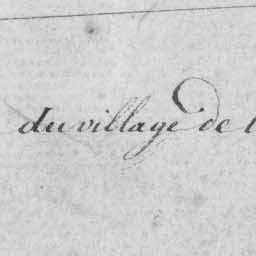 du village de